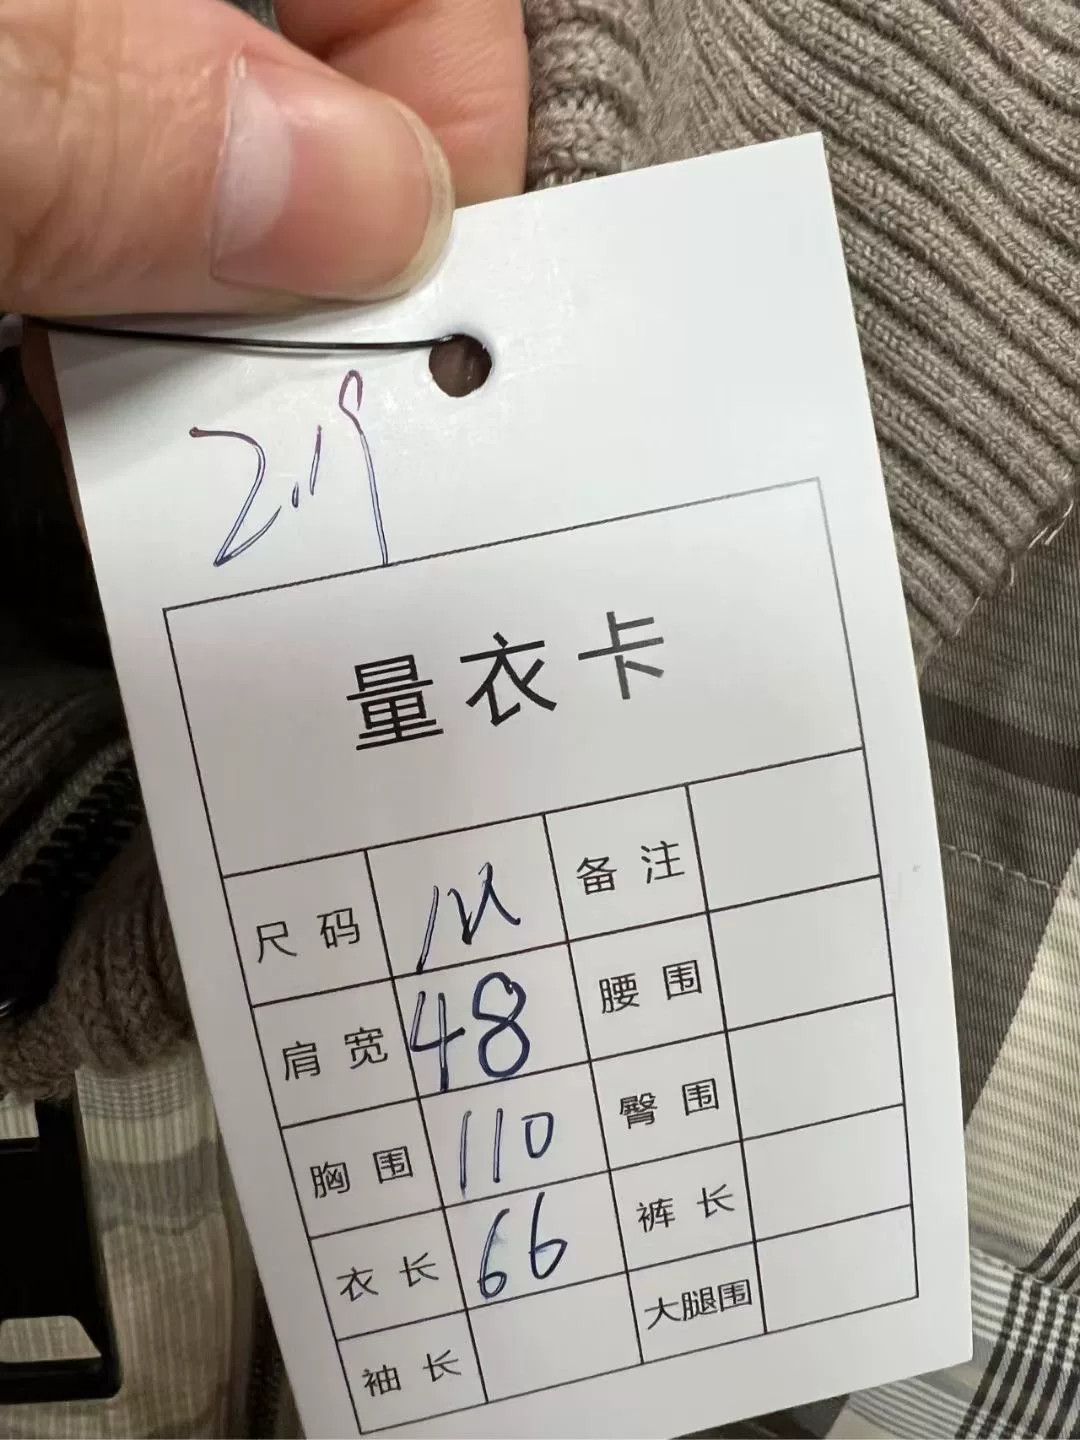 2.19
量衣卡
尺码 M 备注
肩宽 48 腰围
胸围 110 臀围
衣长 66 裤长
袖长 大腿围